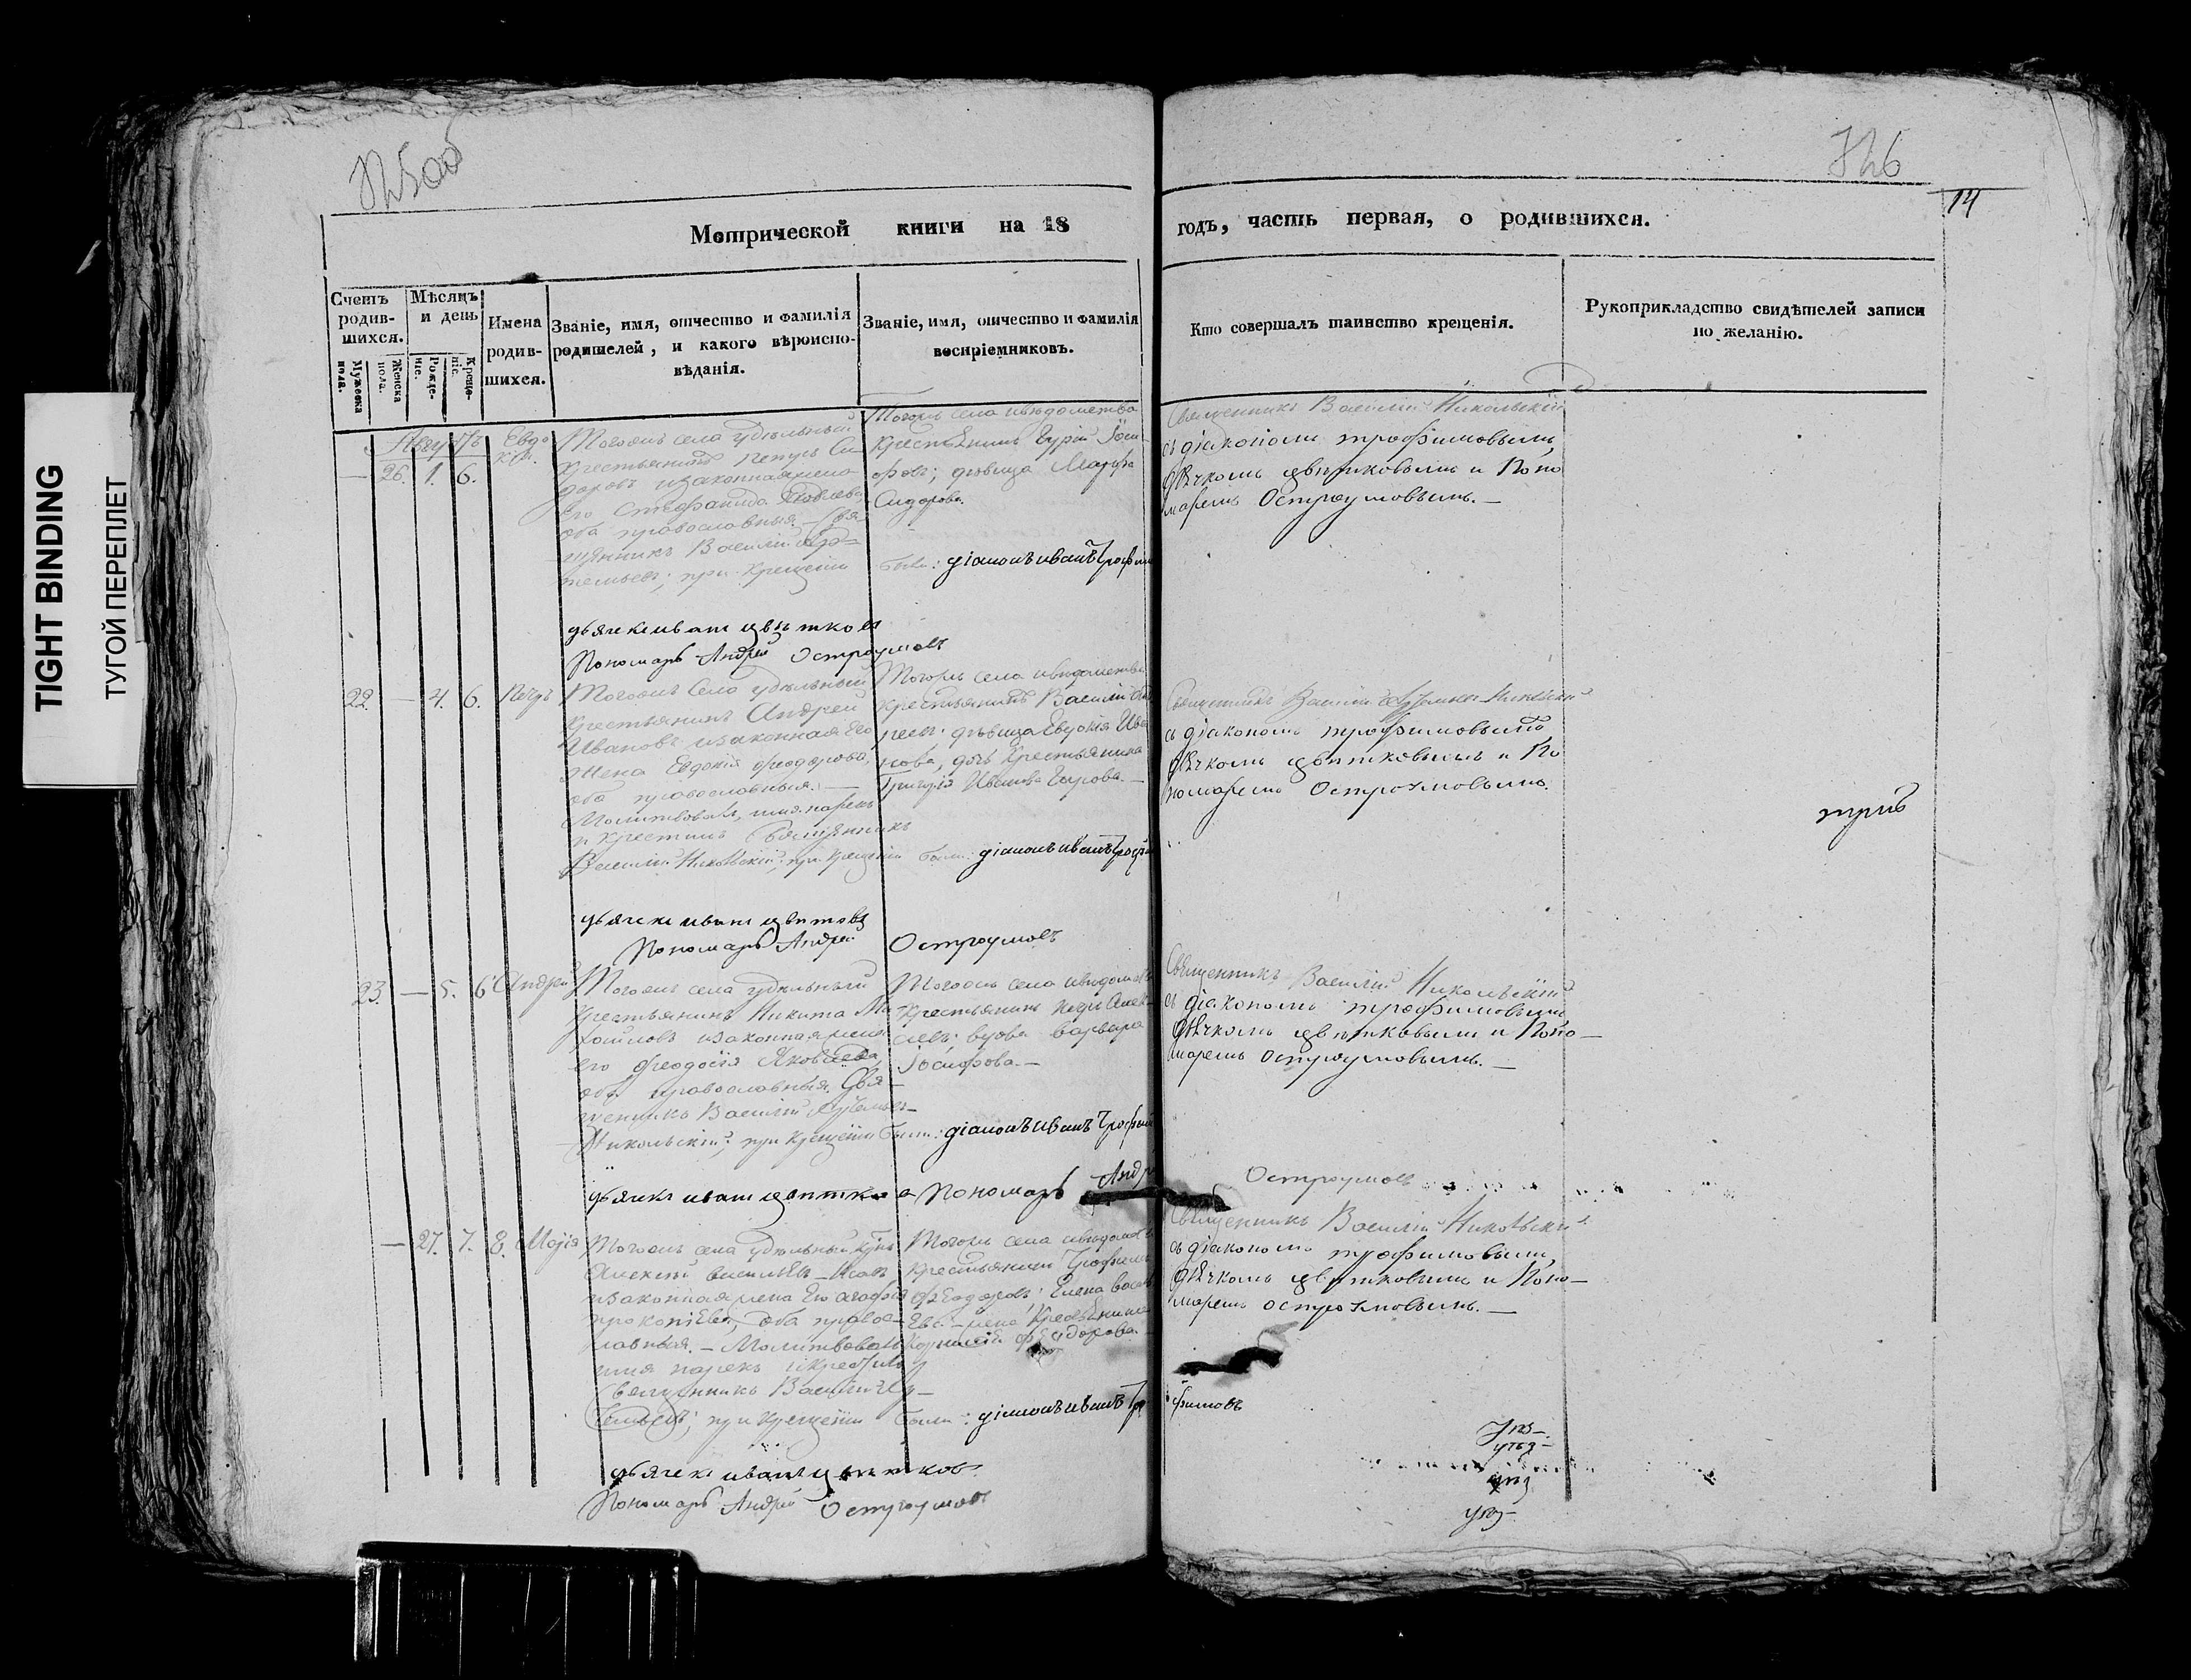 TIGHT BINDING
ТУГОЙ ПЕРЕПЛЕТ
14
Метрической книги на 18
годъ, часть первая, о родившихся.
Счетъ родив-шихся.
Мужеска пола.
Женска пола.
Мѣсяцъ и день
Рожде-ніе.
Креще-ніе.
Имена родив-шихся.
Званіе, имя, отчество и фамилія родителей, и какого вѣроиспо-вѣданія.
Званіе, имя, отчество и фамилія воспріемниковъ.
Кто совершалъ таинство крещенія.
Рукоприкладство свидѣтелей записи по желанію.
Августъ
26. 1. 6.
Евдо
кія.
Тогожъ села удѣльный
крестьянинъ Петръ Си
доровъ и законная жена
его Стефанида Яковлева
оба православныя. Свя
щенникъ Василій Ар-
темьевъ; при крещеніи
были: діаконъ иванъ трофим
дьячекъ иванъ цвѣтковъ
Пономарь Андрей Остроумовъ
Тогожъ села и вѣдомства
крестьянинъ Гурій Іоси
фовъ; дѣвица Марфа
Сидорова.
Священникъ Василій Никольскій
съ діакономъ трофимовымъ,
дьячкомъ цвѣтковымъ и Поно
маремъ Остроумовымъ.—
22 — 4. 6. Петръ
Тогожъ села удѣльный
крестьянинъ Андрей
Ивановъ и законная его
жена Евдокія Феодорова,
оба православныя.—
Молитвовалъ, имя нарекъ
и крестилъ Священникъ
Василій Никольскій; при крещеніи были: діаконъ иванъ трофим
дьячекъ иванъ цвѣтковъ
Пономарь Андрей Остроумовъ
Тогожъ села и вѣдомства
крестьянинъ Василій
дѣвица Евдокія Ива
нова, дочь крестьянина
Григорія Иванова
Священникъ Василій Никольскій
съ діакономъ трофимовымъ
дьячкомъ цвѣтковымъ и По
номаремъ Остроумовымъ.
23. — 5. 6 Андрей
Тогожъ села удѣльный
крестьянинъ Никита Ми
хайловъ и законная жена
его Феодосія Яковлева,
оба православныя. Свя-
щенникъ Василій Артемьевъ
Никольскій; при крещеніи были: діаконъ иванъ трофим
дьячекъ иванъ цвѣтковъ Пономарь Андр
Остроумовъ
Тогожъ села и вѣдомств
крестьянинъ Алек-
сѣевъ; вдова варвара
Іосифова.—
Священникъ Василій Никольскій
съ діакономъ трофимовымъ
дьячкомъ цвѣтковымъ и Поно—
маремъ Остроумовымъ.—
— 27. 7. 8. Марія
Тогожъ села удѣльный
Алексѣй васильевъ
и законная жена его агафія
прокопіева, оба правос-
лавныя.— Молитвовалъ
имя нарекъ и крестилъ
Священникъ Василій Ар—
темьевъ; при крещеніи были: діаконъ иванъ тро
фимовъ
дьячекъ иванъ цвѣтковъ.
Пономарь Андрей Остроумовъ
Тогожъ села и вѣдомств
крестьянинъ Трофимъ
феодоровъ; Елена васил
ева — жена крестьянина
феодорова.
Священникъ Василій Никольскій
съ діакономъ трофимовымъ,
дьячкомъ цвѣтковымъ и Поно—
маремъ остроумовымъ.—